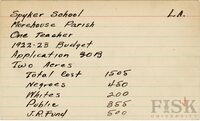 Spyker School L.A.
Morehouse Parish
One Teacher
1922-23 Budget
Application 30B
Two Acres
Total Cost 1505
Negroes 450
Whites 200
Public 355
J.R. Fund 500
FISK
UNIVERSITY